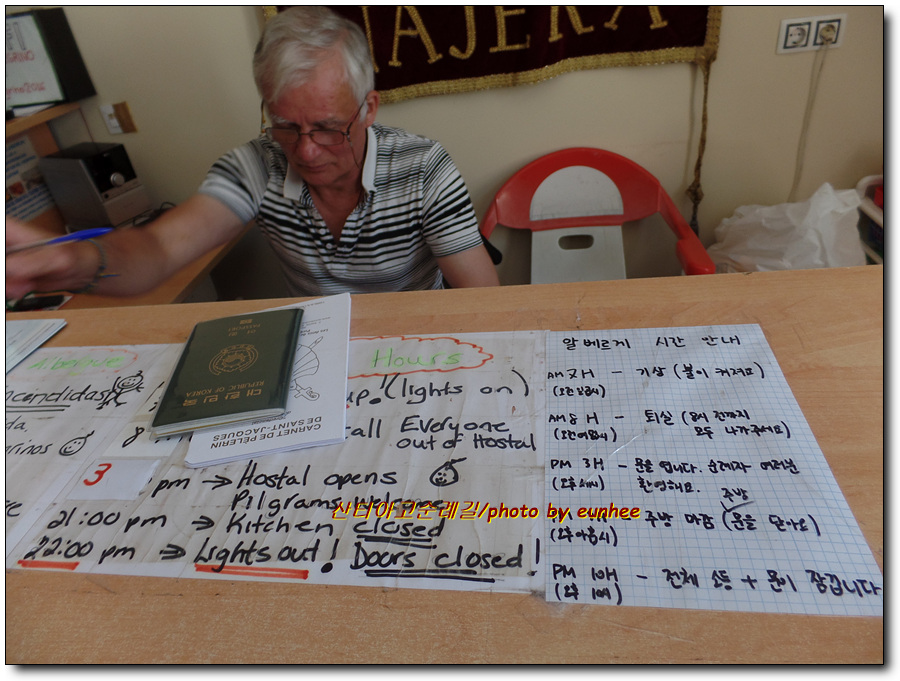 NAJERA
A.bergue
Hours
encendidas
up! (lights on)
all Everyone
out of Hostal
3 pm → Hostal opens
Pilgrams Welcome
21:00 pm → Kitchen closed
22:00 pm → Lights out! Doors closed!
PASSPORT
REPUBLIC OF KOREA
대한민국
CARNET DE PELERIN
DE SAINT-JACQUES
알베르게 시간 안내
AM 7H - 기상 (불이 켜져요)
AM 8H - 퇴실 (8시 전까지
모두 나가주세요)
PM 3H - 문을 엽니다. 순례자 여러분
(오후 세시) 환영해요.
주방
주방 마감 (문을 닫아요)
(오후 아홉시)
PM 10H - 전체 소등 + 문이 잠깁니다
(오후 10시)
산티아고순례길/photo by eunhee